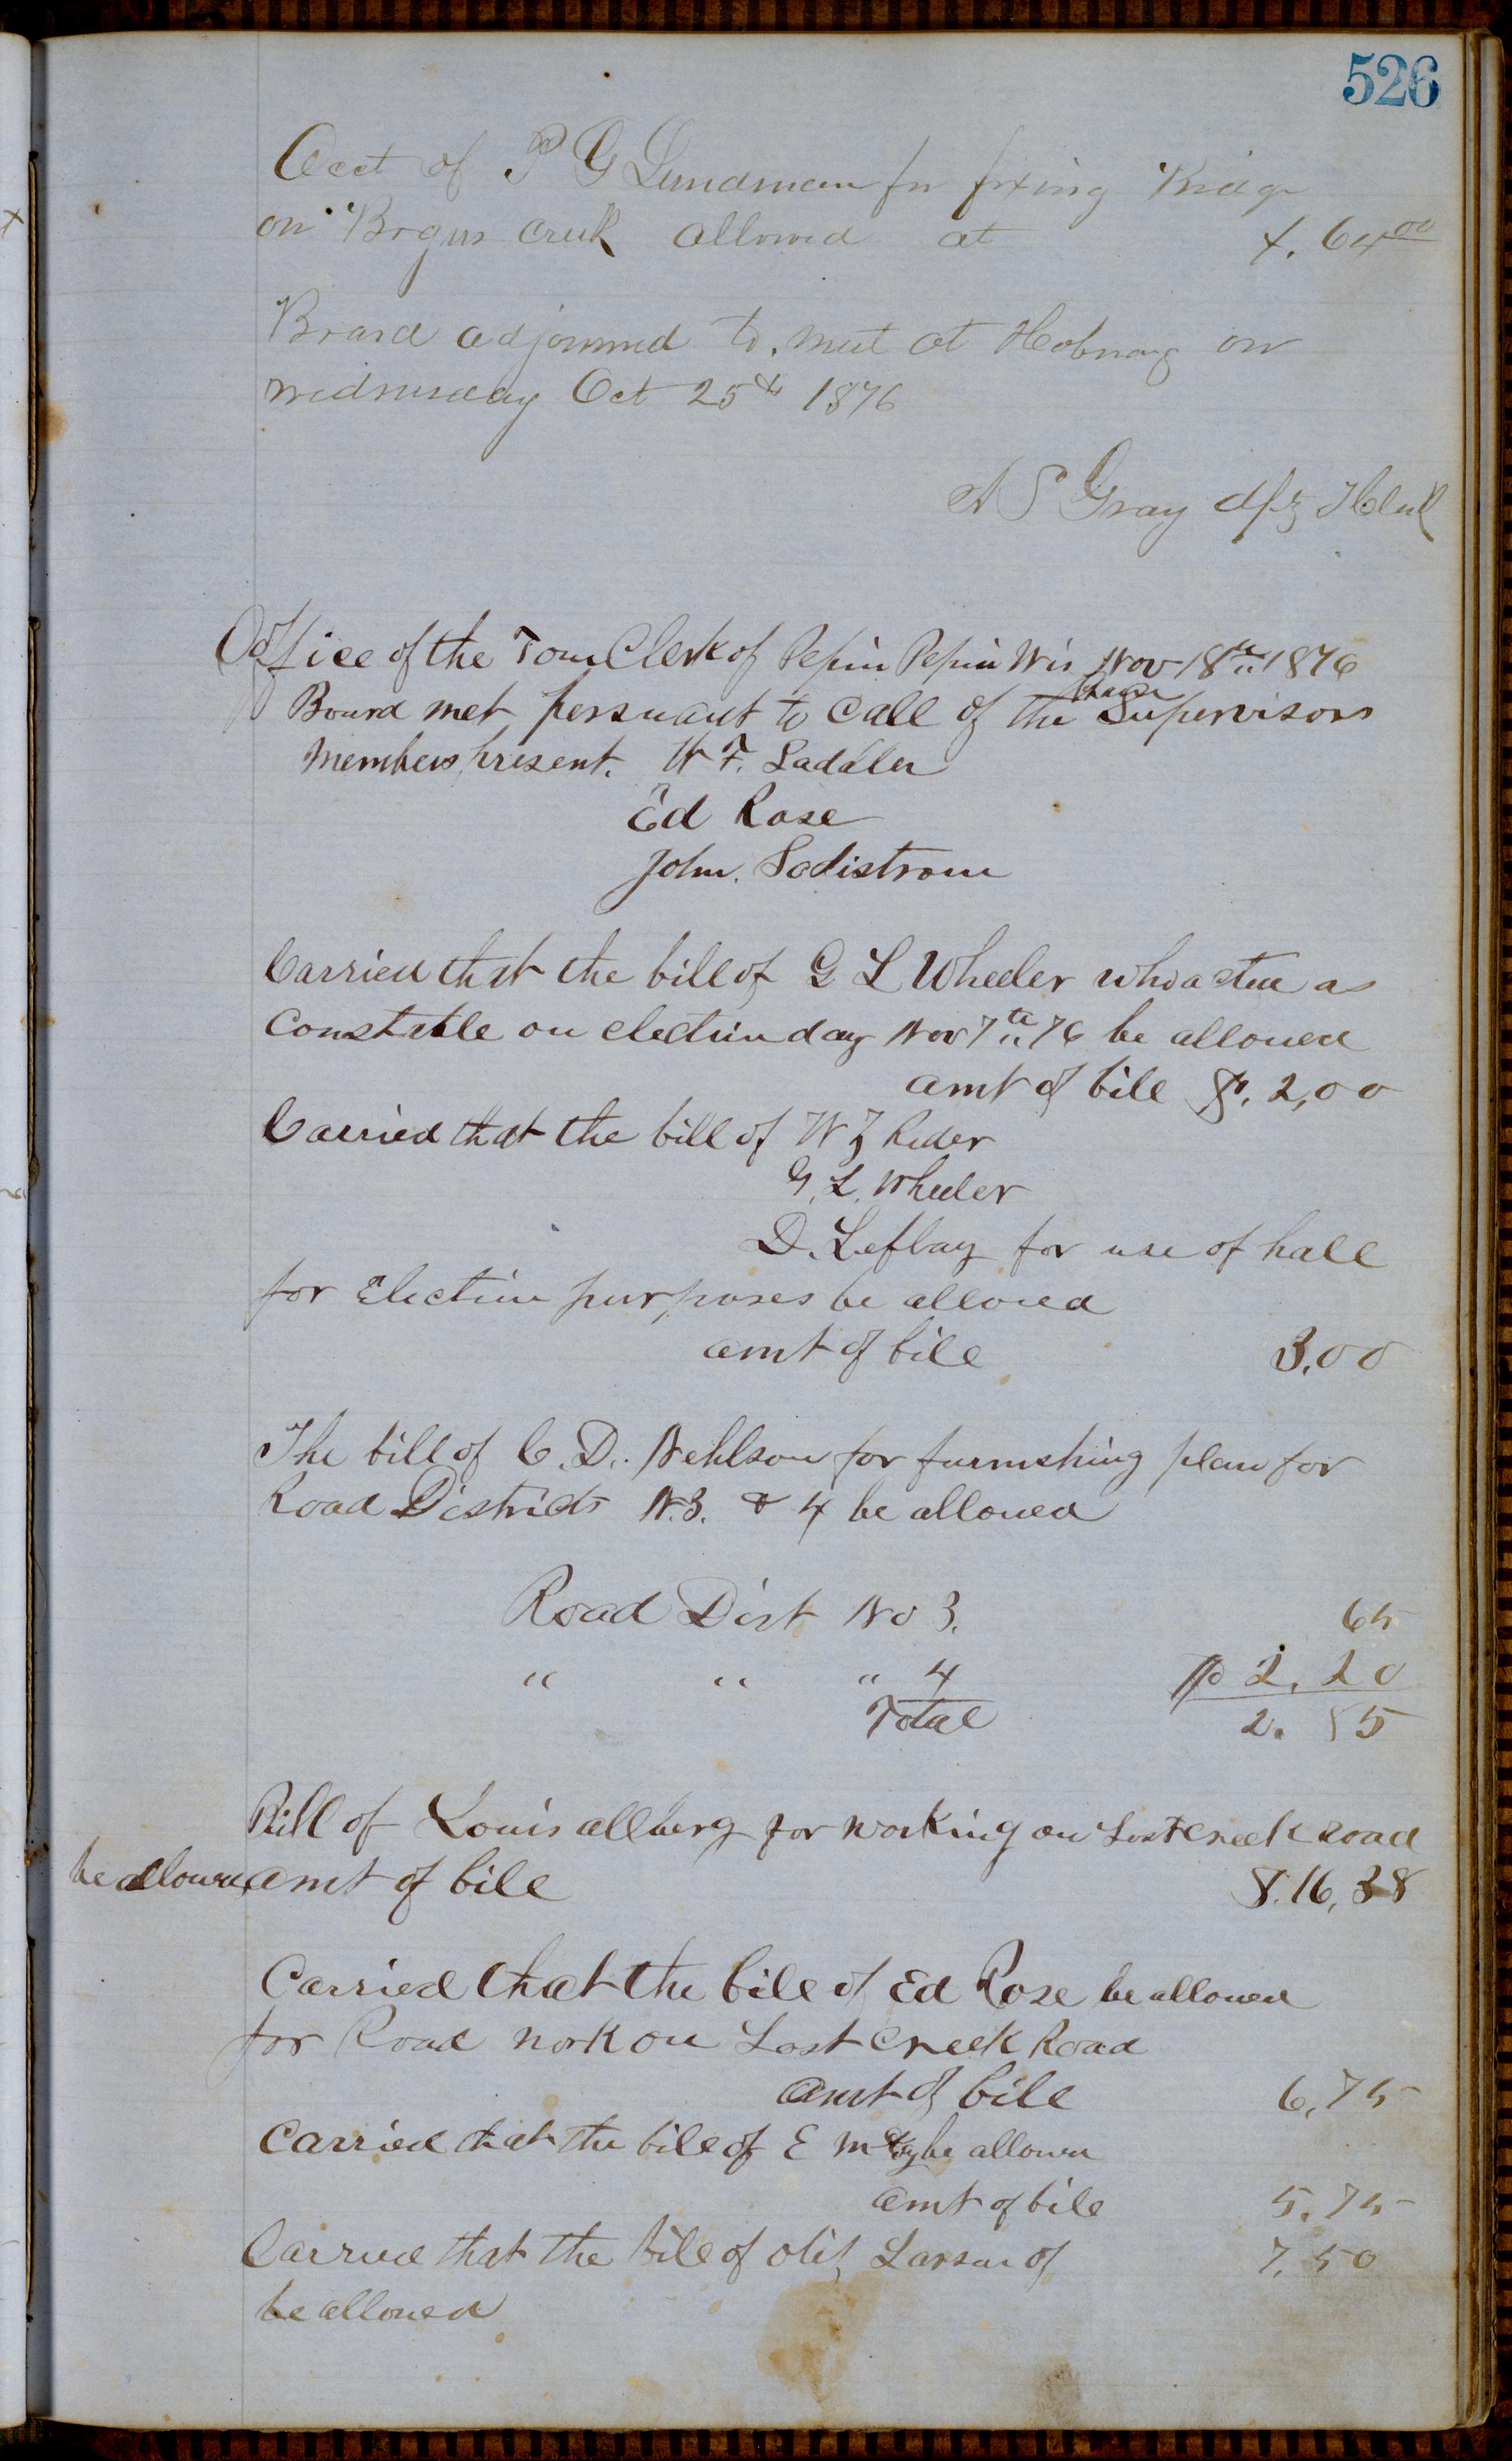 526
Acct of P G Lundman for fixing Bridge
on Bogus creek allowed at 64 00
Board adjourned to meet at on
wednesday Oct 25th 1876
A S Gray dpty T Clerk
Office of the Town Clerk of Pepin Pepin Wis Nov 18th 1876
Board met persuant to call of the Supervisors
Members present. W F. Saddler
Ed Rose
John. Sodistrom
Carried that the bill of G L Wheeler who acted as
Constable on election day Nov 7th 76 be allowed
amt of bill $. 2,00
Carried that the bill of W Z Rider
G. L. Wheeler
D. for use of hall
for Election purposes be allowed
amt of bill 3.00
The bill of C. D. Nehlson for furnishing plan for
Road Districts N. 3. & 4 be allowed
Road Dist No 3. 65
" " " 4 2. 20
Total 2. 85
Bill of Louis allberg for working on Lost creek Road
be allowed amt of bill $. 16, 38
Carried that the bill of Ed Rose be allowed
for Road work on Lost Creek Road
amt of bill 6,75
Carried that the bill of E be allowed
amt of bill 5.75
Carried that the bill of Larson of 7,50
be allowed